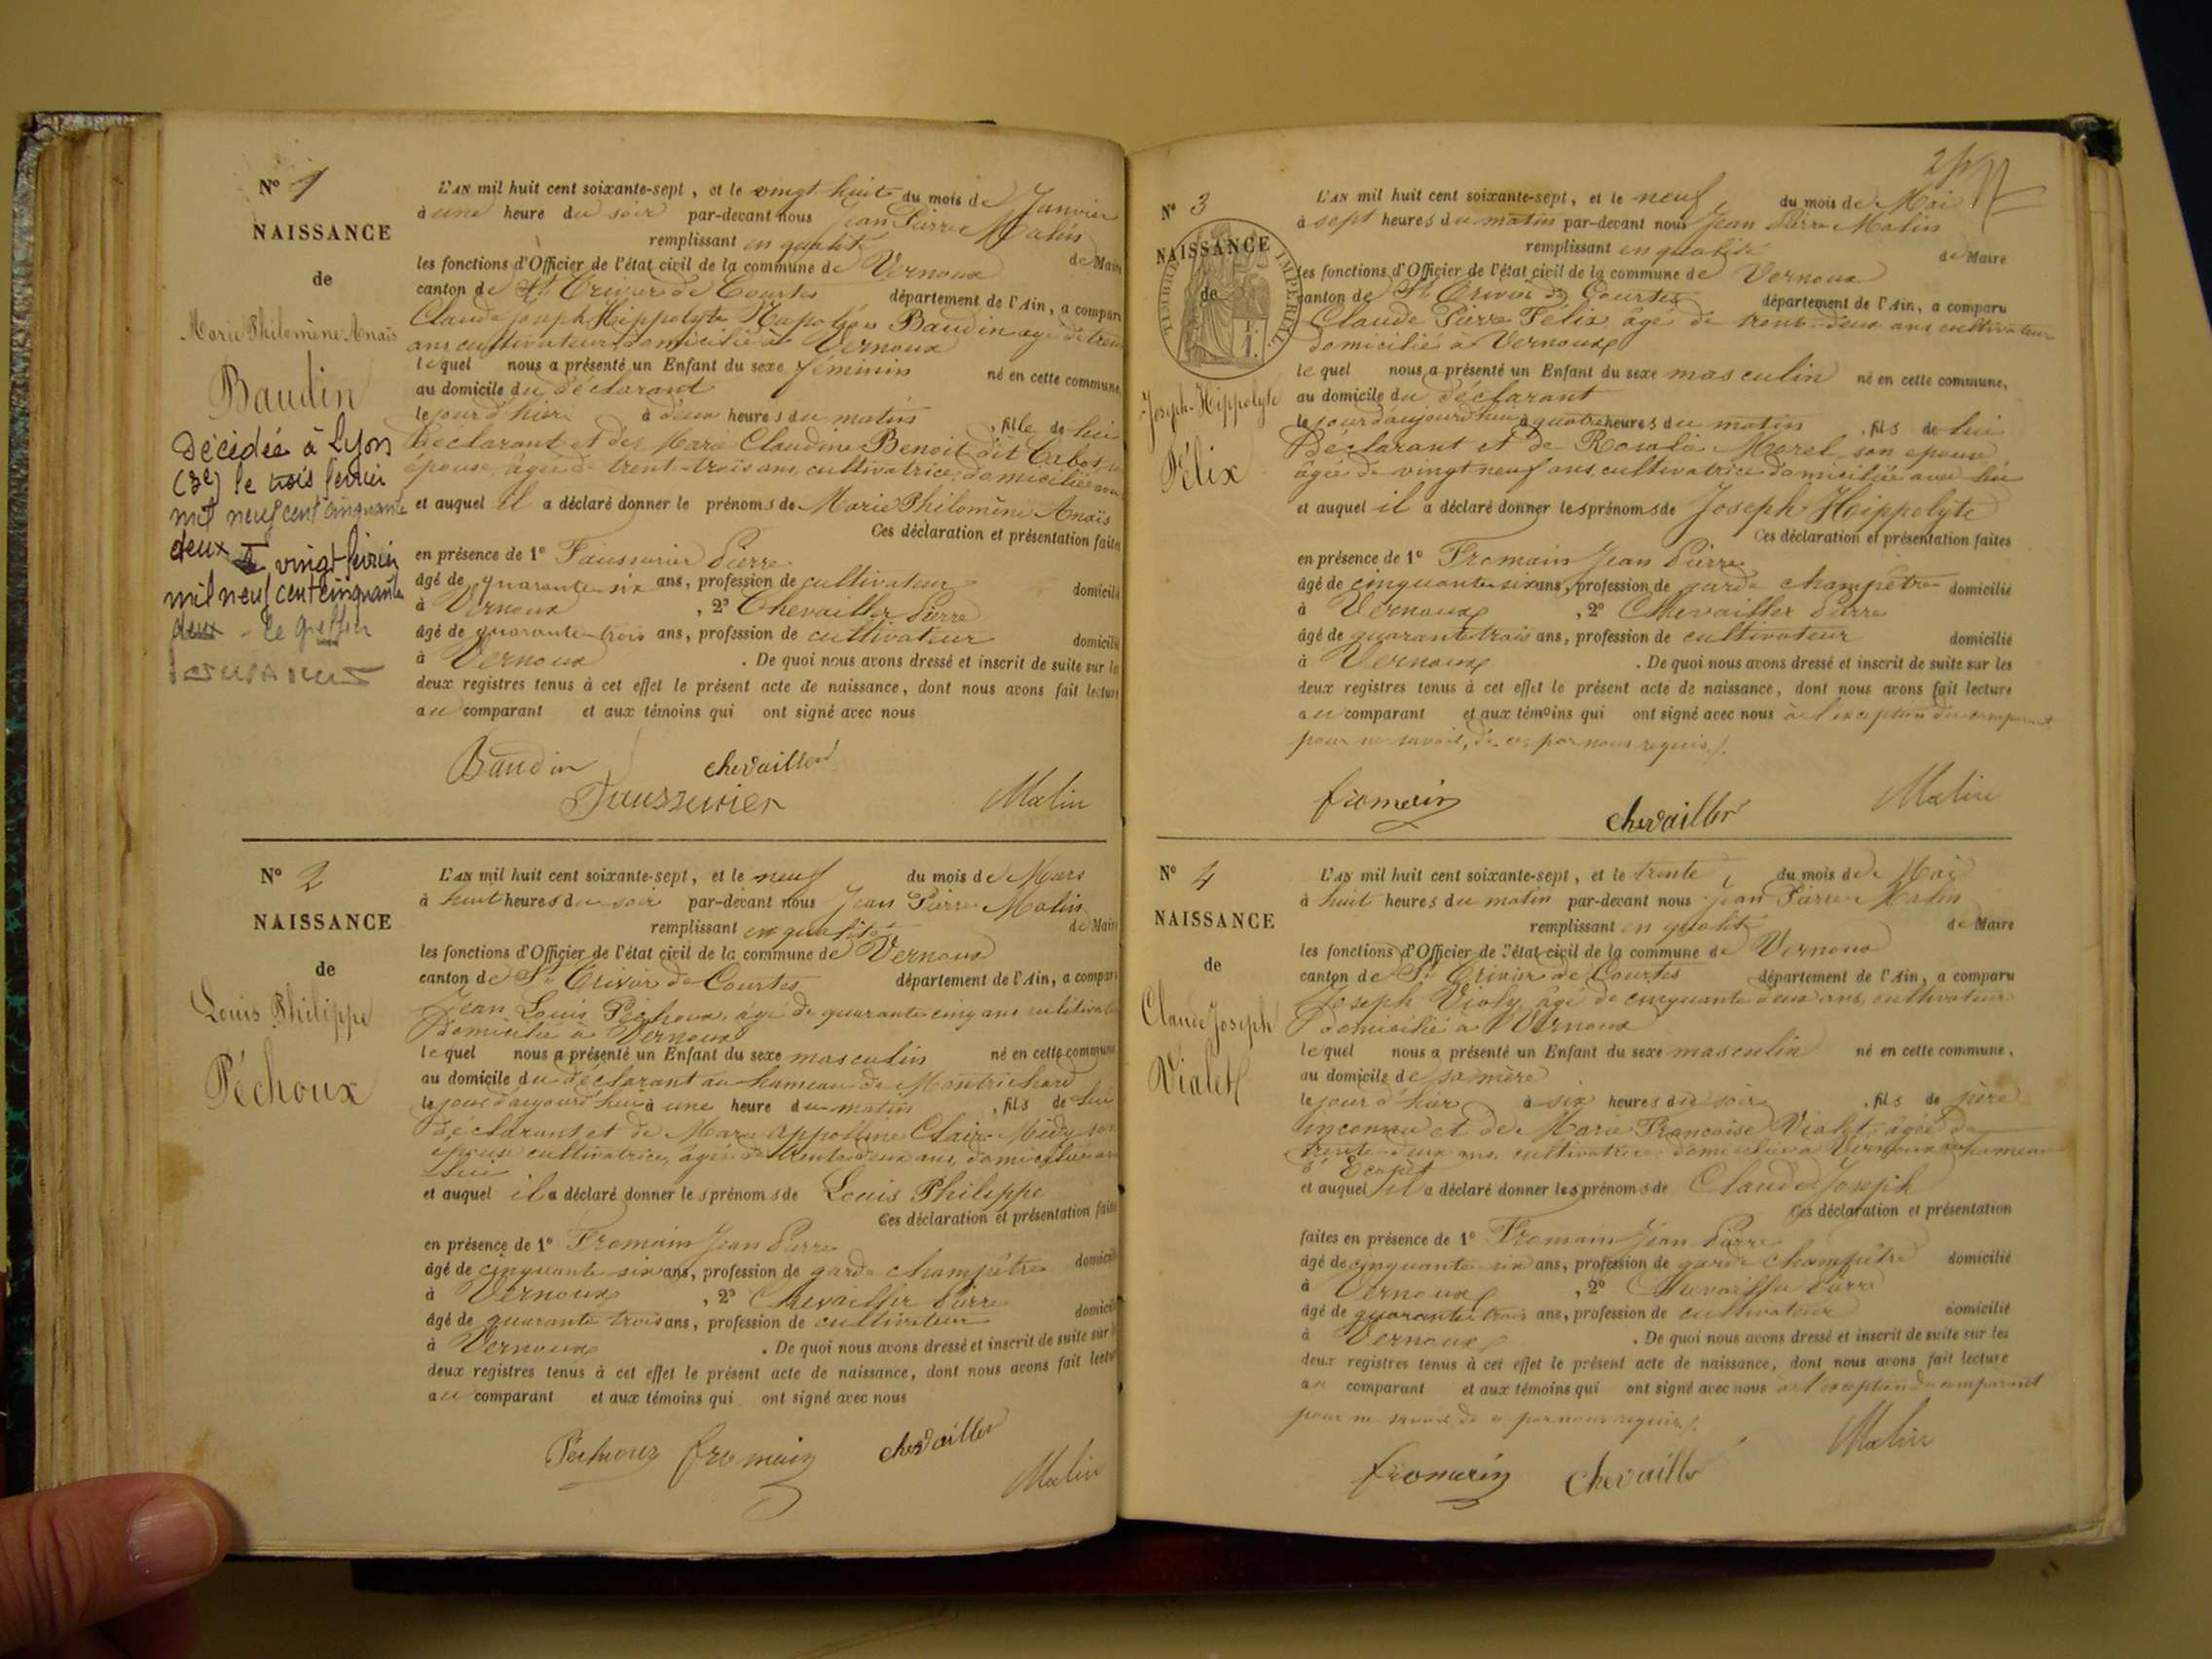 N° 1
NAISSANCE
de
Marie Philomène Anaïs
Baudin
Décédée à Lyon
(3e) le trois février
mil neuf cent cinquante
deux Le vingt février
mil neuf cent cinquante
deux - Le Greffier
L'AN mil huit cent soixante-sept, et le vingt huit du mois de Janvier
à une heure du soir par-devant nous Jean Pierre Matin
remplissant en qualité de Maire
les fonctions d'Officier de l'état civil de la commune de Vernoux
canton de St Trivier de Courtes département de l'Ain, a comparu
Claude Joseph Hippolyte Napoléon Baudin agé de
ans cultivateur domicilié à Vernoux
lequel nous a présenté un Enfant du sexe féminin né en cette commune
au domicile du déclarant
le jour d'hier à deux heures du matin, fille de lui
déclarant et de Marie Claudine Benoit dit Cabot
épouse, âgée de trente-trois ans, cultivatrice, domiciliée avec
et auquel il a déclaré donner le prénoms de Marie Philomène Anaïs
Ces déclaration et présentation faites
en présence de 1° Faussurier Pierre
âgé de quarante six ans, profession de cultivateur domicilié
à Vernoux, 2° Chevailler Pierre
âgé de quarante-trois ans, profession de cultivateur domicilié
à Vernoux. De quoi nous avons dressé et inscrit de suite sur les
deux registres tenus à cet effet le présent acte de naissance, dont nous avons fait lecture
au comparant et aux témoins qui ont signé avec nous
Baudin chevailler
Faussurier Matin
N° 2
NAISSANCE
de
Louis Philippe
Péchoux
L'AN mil huit cent soixante-sept, et le neuf du mois de Mars
à huit heures du soir par-devant nous Jean Pierre Matin
remplissant en qualité de Maire
les fonctions d'Officier de l'état civil de la commune de Vernoux
canton de St Trivier de Courtes département de l'Ain, a comparu
Jean Louis Péchoux, âgé de quarante cinq ans cultivateur
domicilié à Vernoux
lequel nous a présenté un Enfant du sexe masculin né en cette commune
au domicile du déclarant au hameau de Montrichard
le jour d'aujourd'hui à une heure du matin, fils de lui
déclarant et de Marie Appolline Claire Midy son
épouse cultivatrice, âgée de trente deux ans, domiciliée avec
lui
et auquel il a déclaré donner les prénoms de Louis Philippe
Ces déclaration et présentation faites
en présence de 1° Fromain Jean Pierre
âgé de cinquante six ans, profession de garde champêtre domicilié
à Vernoux, 2° Chevailler Pierre
âgé de quarante trois ans, profession de cultivateur domicilié
à Vernoux. De quoi nous avons dressé et inscrit de suite sur les
deux registres tenus à cet effet le présent acte de naissance, dont nous avons fait lecture
au comparant et aux témoins qui ont signé avec nous
Péchoux fromain chevailler
Matin
N° 3
NAISSANCE
de
TIMBRE IMPÉRIAL
Joseph-Hippolyte
Félix
L'AN mil huit cent soixante-sept, et le neuf du mois de Mai
à sept heures du matin par-devant nous Jean Pierre Matin
remplissant en qualité de Maire
les fonctions d'Officier de l'état civil de la commune de Vernoux
canton de St Trivier de Courtes département de l'Ain, a comparu
Claude Pierre Félix, âgé de trente-deux ans cultivateur
domicilié à Vernoux
lequel nous a présenté un Enfant du sexe masculin né en cette commune,
au domicile du déclarant
le jour d'aujourd'hui à quatre heures du matin, fils de lui
déclarant et de Rosalie Morel son épouse
âgée de vingt neuf ans, cultivatrice domiciliée avec lui
et auquel il a déclaré donner les prénoms de Joseph Hippolyte
Ces déclaration et présentation faites
en présence de 1° Fromain Jean Pierre
âgé de cinquante six ans, profession de garde champêtre domicilié
à Vernoux, 2° Chevailler Pierre
âgé de quarante trois ans, profession de cultivateur domicilié
à Vernoux. De quoi nous avons dressé et inscrit de suite sur les
deux registres tenus à cet effet le présent acte de naissance, dont nous avons fait lecture
au comparant et aux témoins qui ont signé avec nous à l'exception du comparant
pour ne savoir, de ce par nous requis.
fromain chevailler Matin
N° 4
NAISSANCE
de
Claude Joseph
Vialet
L'AN mil huit cent soixante-sept, et le trente du mois de Mai
à huit heures du matin par-devant nous Jean Pierre Matin
remplissant en qualité de Maire
les fonctions d'Officier de l'état civil de la commune de Vernoux
canton de St Trivier de Courtes département de l'Ain, a comparu
Joseph Violy, âgé de cinquante deux ans, cultivateur
domicilié à Vernoux
lequel nous a présenté un Enfant du sexe masculin né en cette commune,
au domicile de sa mère
le jour d'hier à six heures du soir, fils de père
inconnu et de Marie Françoise Vialet, âgée de
trente deux ans, cultivatrice domiciliée à Vernoux au hameau
et auquel il a déclaré donner les prénoms de Claude Joseph
Ces déclaration et présentation
faites en présence de 1° Fromain Jean Pierre
âgé de cinquante six ans, profession de garde champêtre domicilié
à Vernoux, 2° Chevailler Pierre
âgé de quarante trois ans, profession de cultivateur domicilié
à Vernoux. De quoi nous avons dressé et inscrit de suite sur les
deux registres tenus à cet effet le présent acte de naissance, dont nous avons fait lecture
au comparant et aux témoins qui ont signé avec nous à l'exception du comparant
pour ne savoir, de ce par nous requis.
Matin
fromain chevailler